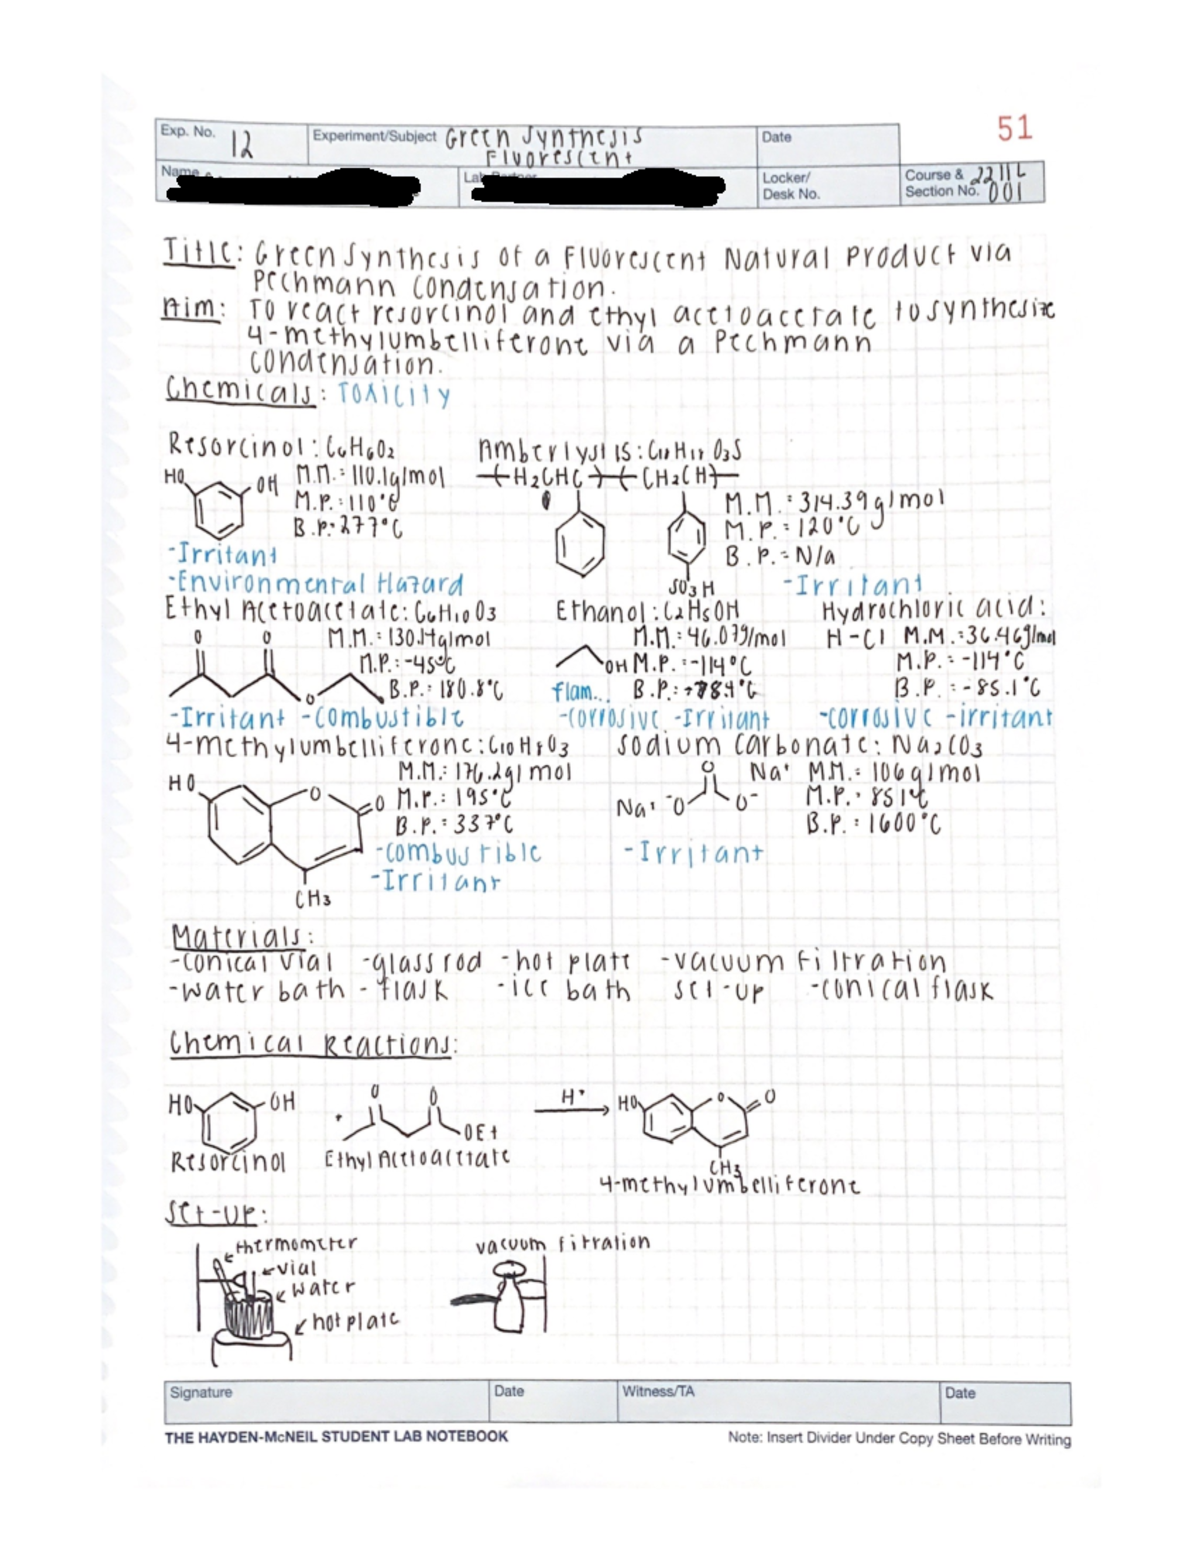 51
Exp. No. 12 Experiment/Subject Green Synthesis Fluorescent Date
Name Lab Partner Locker/ Desk No. Course & Section No. 2211L 001
Title: Green Synthesis of a Fluorescent Natural Product via
Pechmann condensation.
Aim: To react resorcinol and ethyl acetoacetate to synthesize
4-methylumbelliferone via a Pechmann
condensation.
Chemicals: Toxicity
Resorcinol: C6H6O2 Amberlyst 15: C18H18O3S
HO OH M.M.: 110.1g/mol H2CHC CH2CH
M.P.: 110°C M.M.: 314.39g/mol
B.P: 277°C M.P.: 120°C
-Irritant B.P.: N/a
-Environmental Hazard SO3H -Irritant
Ethyl Acetoacetate: C6H10O3 Ethanol: C2H5OH Hydrochloric acid:
O O M.M.: 130.14g/mol M.M.: 46.07g/mol H-Cl M.M.: 36.46g/mol
M.P.: -45°C OH M.P.: -114°C M.P.: -114°C
O B.P.: 180.8°C flam... B.P.: 78.4°C B.P.: -85.1°C
-Irritant -Combustible -corrosive -Irritant -corrosive -irritant
4-methylumbelliferone: C10H8O3 Sodium Carbonate: Na2CO3
HO O O M.M.: 176.2g/mol O Na+ M.M.: 106g/mol
M.P.: 195°C Na+ -O O- M.P.: 851°C
B.P.: 337°C B.P.: 1600°C
-combustible -Irritant
-Irritant
CH3
Materials:
-conical vial -glass rod -hot plate -vacuum filtration
-water bath -flask -ice bath set-up -conical flask
Chemical Reactions:
HO OH + O O OEt H+ HO O O
Resorcinol Ethyl Acetoacetate CH3
4-methylumbelliferone
Set-up:
thermometer vacuum fitration
vial
water
hot plate
Signature Date Witness/TA Date
THE HAYDEN-McNEIL STUDENT LAB NOTEBOOK Note: Insert Divider Under Copy Sheet Before Writing